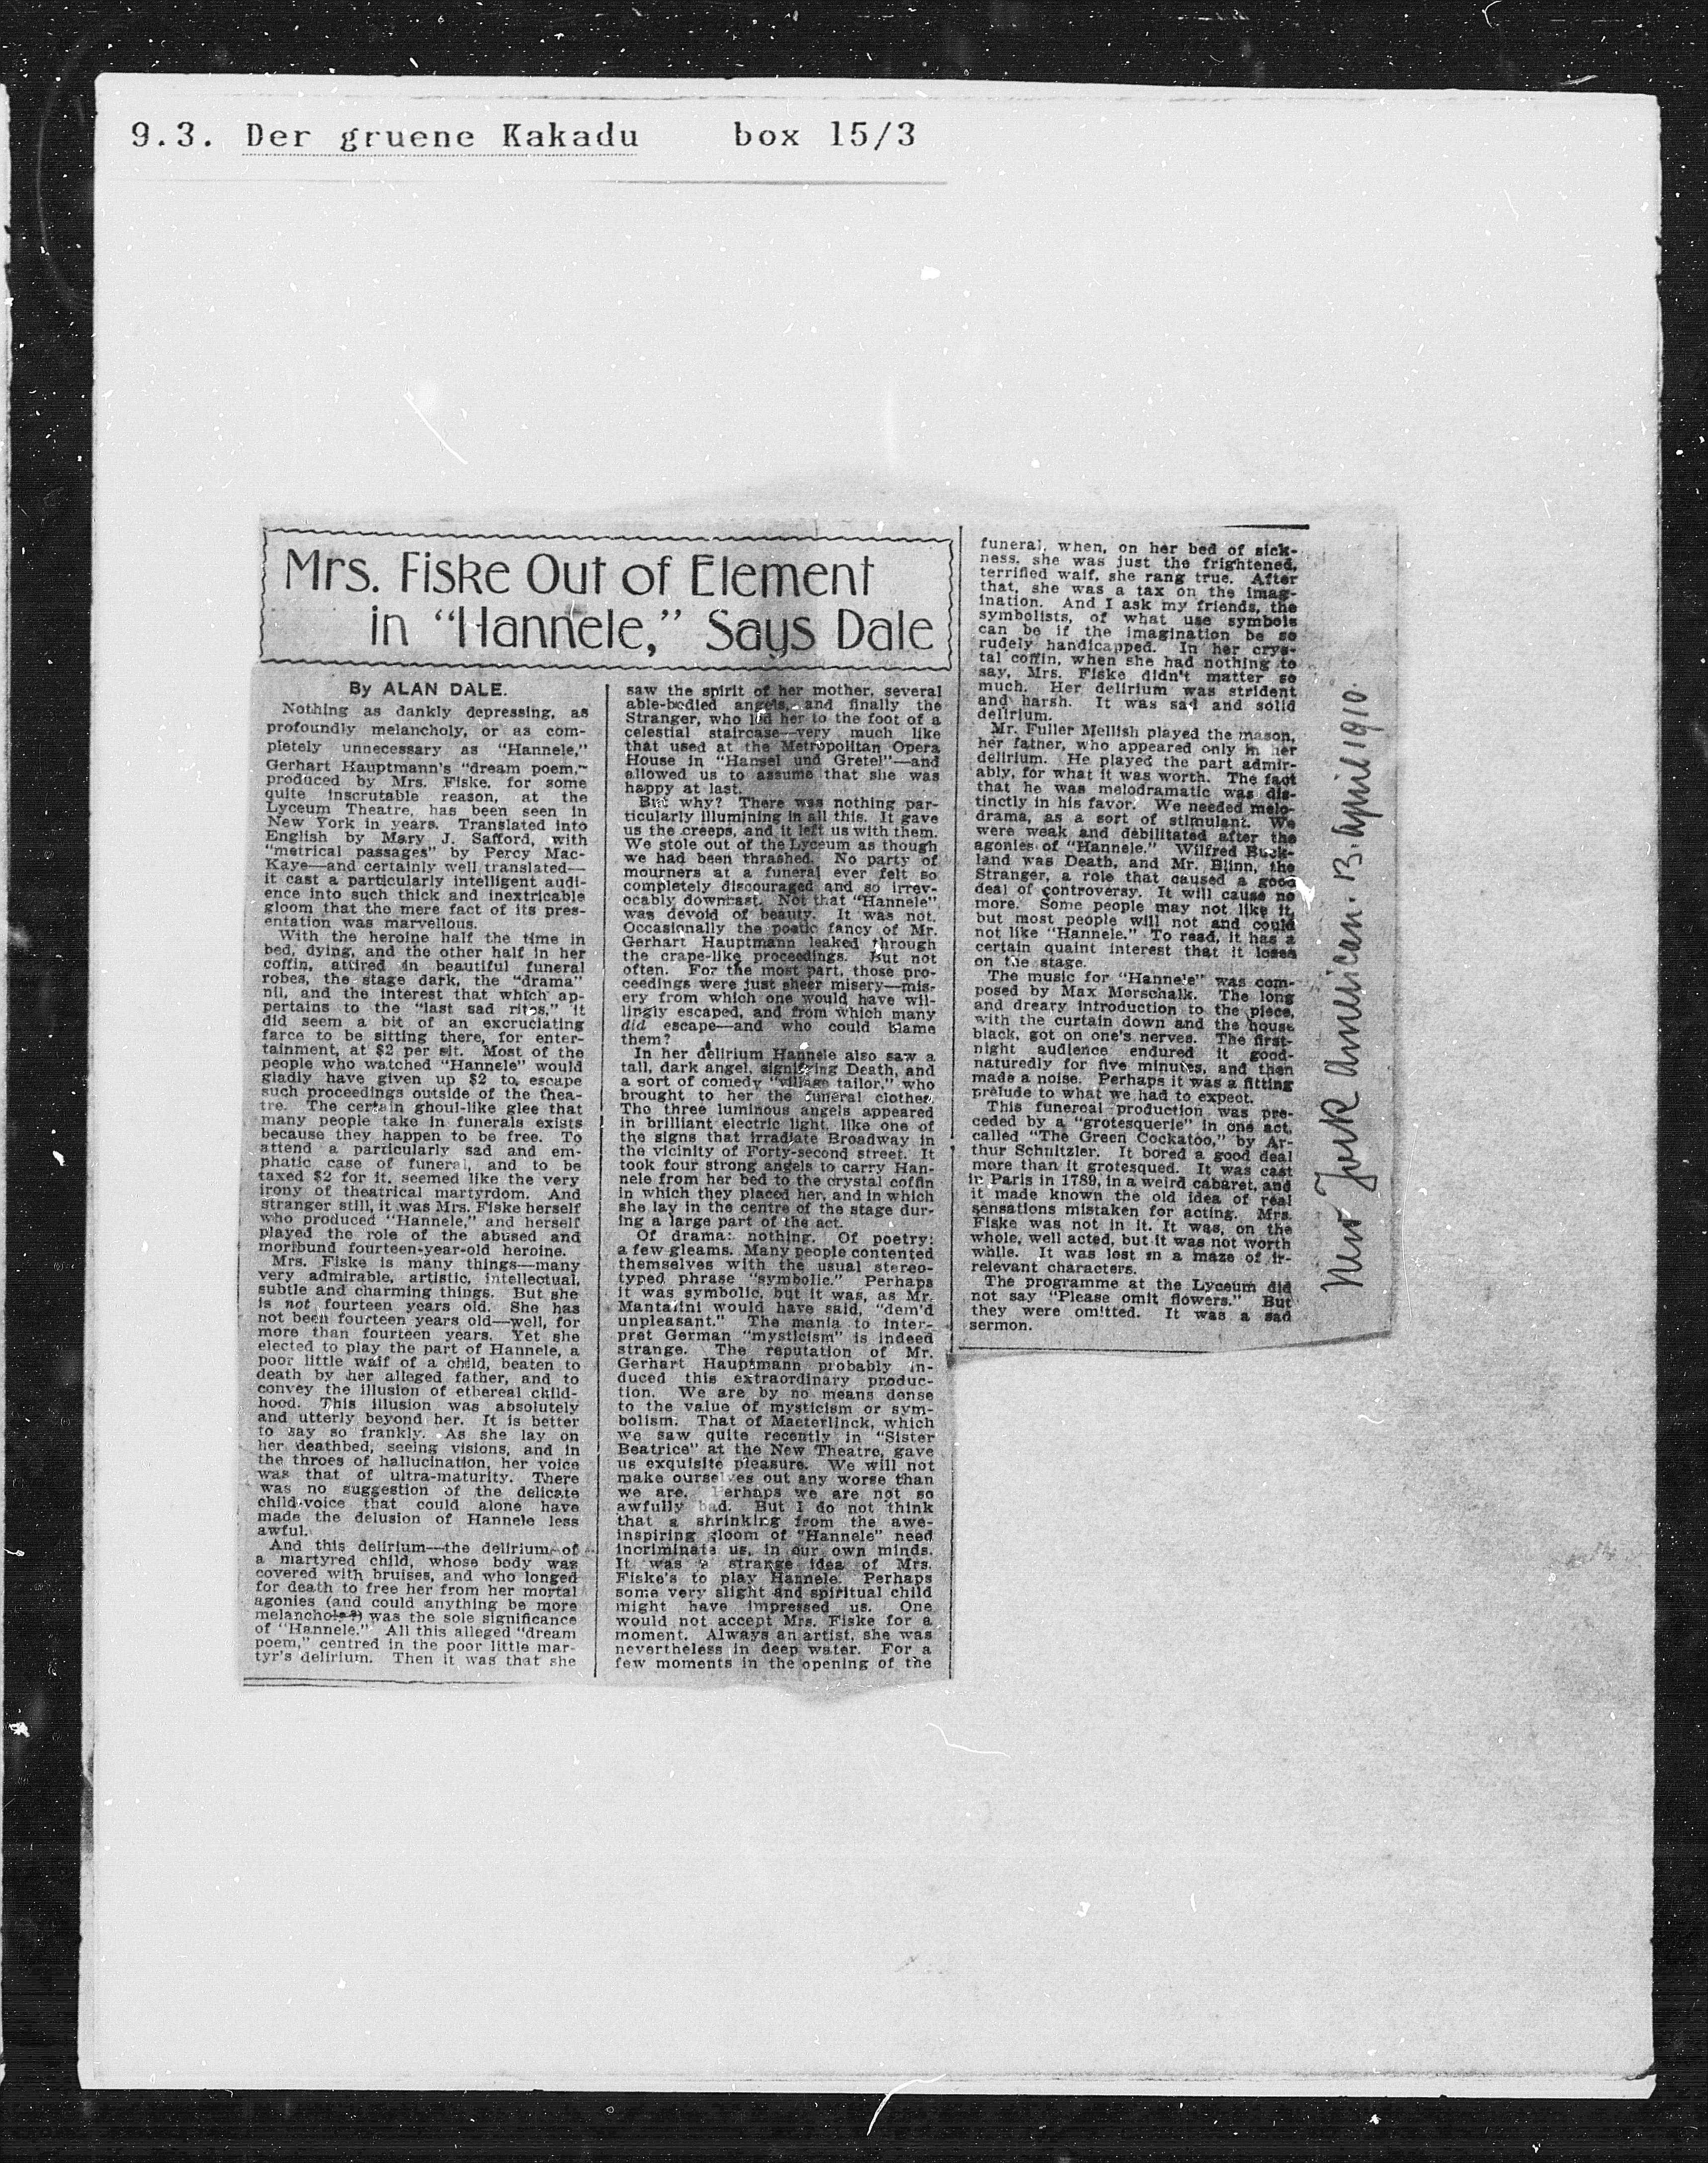 9.3. Der gruene Kakadu box 15/3
Mrs. Fiske Out of Element
in "Hannele," Says Dale
By ALAN DALE.
Nothing as dankly depressing, as
profoundly melancholy, or as com-
pletely unnecessary as "Hannele,"
Gerhart Hauptmann's "dream poem,"
produced by Mrs. Fiske, for some
quite inscrutable reason, at the
Lyceum Theatre, has been seen in
New York in years. Translated into
English by Mary J. Safford, with
"metrical passages" by Percy Mac-
Kaye—and certainly well translated—
it cast a particularly intelligent audi-
ence into such thick and inextricable
gloom that the mere fact of its pres-
entation was marvellous.
With the heroine half the time in
bed, dying, and the other half in her
coffin, attired in beautiful funeral
robes, the stage dark, the "drama"
nil, and the interest that which ap-
pertains to the "last sad rites," it
did seem a bit of an excruciating
farce to be sitting there, for enter-
tainment, at $2 per sit. Most of the
people who watched "Hannele" would
gladly have given up $2 to escape
such proceedings outside of the thea-
tre. The certain ghoul-like glee that
many people take in funerals exists
because they happen to be free. To
attend a particularly sad and em-
phatic case of funeral, and to be
taxed $2 for it, seemed like the very
irony of theatrical martyrdom. And
stranger still, it was Mrs. Fiske herself
who produced "Hannele," and herself
played the role of the abused and
moribund fourteen-year-old heroine.
Mrs. Fiske is many things—many
very admirable, artistic, intellectual,
subtle and charming things. But she
is not fourteen years old. She has
not been fourteen years old—well, for
more than fourteen years. Yet she
elected to play the part of Hannele, a
poor little waif of a child, beaten to
death by her alleged father, and to
convey the illusion of ethereal child-
hood. This illusion was absolutely
and utterly beyond her. It is better
to say so frankly. As she lay on
her deathbed, seeing visions, and in
the throes of hallucination, her voice
was that of ultra-maturity. There
was no suggestion of the delicate
child-voice that could alone have
made the delusion of Hannele less
awful.
And this delirium—the delirium of
a martyred child, whose body was
covered with bruises, and who longed
for death to free her from her mortal
agonies (and could anything be more
was the sole significance
of "Hannele." All this alleged "dream
poem," centred in the poor little mar-
tyr's delirium. Then it was that she
saw the spirit of her mother, several
able-bodied angels, and finally the
Stranger, who led her to the foot of a
celestial staircase—very much like
that used at the Metropolitan Opera
House in "Hansel und Gretel"—and
allowed us to assume that she was
happy at last.
But why? There was nothing par-
ticularly illumining in all this. It gave
us the creeps, and it left us with them.
We stole out of the Lyceum as though
we had been thrashed. No party of
mourners at a funeral ever felt so
completely discouraged and so irrev-
ocably downcast. Not that "Hannele"
was devoid of beauty. It was not.
Occasionally the poetic fancy of Mr.
Gerhart Hauptmann leaked through
the crape-like proceedings. But not
often. For the most part, those pro-
ceedings were just sheer misery—mis-
ery from which one would have wil-
lingly escaped, and from which many
did escape—and who could blame
them?
In her delirium Hannele also saw a
tall, dark angel, signifying Death, and
a sort of comedy "village tailor," who
brought to her the funeral clothes.
The three luminous angels appeared
in brilliant electric light, like one of
the signs that irradiate Broadway in
the vicinity of Forty-second street. It
took four strong angels to carry Han-
nele from her bed to the crystal coffin
in which they placed her, and in which
she lay in the centre of the stage dur-
ing a large part of the act.
Of drama: nothing. Of poetry:
a few gleams. Many people contented
themselves with the usual stereo-
typed phrase "symbolic." Perhaps
it was symbolic, but it was, as Mr.
Mantalini would have said, "dem'd
unpleasant." The mania to inter-
pret German "mysticism" is indeed
strange. The reputation of Mr.
Gerhart Hauptmann probably in-
duced this extraordinary produc-
tion. We are by no means dense
to the value of mysticism or sym-
bolism. That of Maeterlinck, which
we saw quite recently in "Sister
Beatrice" at the New Theatre, gave
us exquisite pleasure. We will not
make ourselves out any worse than
we are. Perhaps we are not so
awfully bad. But I do not think
that a shrinking from the awe-
inspiring gloom of "Hannele" need
incriminate us, in our own minds.
It was a strange idea of Mrs.
Fiske's to play Hannele. Perhaps
some very slight and spiritual child
might have impressed us. One
would not accept Mrs. Fiske for a
moment. Always an artist, she was
nevertheless in deep water. For a
few moments in the opening of the
funeral, when, on her bed of sick-
ness, she was just the frightened,
terrified waif, she rang true. After
that, she was a tax on the imag-
ination. And I ask my friends, the
symbolists, of what use symbols
can be if the imagination be so
rudely handicapped. In her crys-
tal coffin, when she had nothing to
say, Mrs. Fiske didn't matter so
much. Her delirium was strident
and harsh. It was sad and solid
delirium.
Mr. Fuller Mellish played the mason,
her father, who appeared only in her
delirium. He played the part admir-
ably, for what it was worth. The fact
that he was melodramatic was dis-
tinctly in his favor. We needed melo-
drama, as a sort of stimulant. We
were weak and debilitated after the
agonies of "Hannele." Wilfred Buck-
land was Death, and Mr. Blinn, the
Stranger, a role that caused a good
deal of controversy. It will cause no
more. Some people may not like it,
but most people will not and could
not like "Hannele." To read, it has a
certain quaint interest that it loses
on the stage.
The music for "Hannele" was com-
posed by Max Morschalk. The long
and dreary introduction to the piece,
with the curtain down and the house
black, got on one's nerves. The first-
night audience endured it good-
naturedly for five minutes, and then
made a noise. Perhaps it was a fitting
prelude to what we had to expect.
This funereal production was pre-
ceded by a "grotesquerie" in one act,
called "The Green Cockatoo," by Ar-
thur Schnitzler. It bored a good deal
more than it grotesqued. It was cast
in Paris in 1789, in a weird cabaret, and
it made known the old idea of real
sensations mistaken for acting. Mrs.
Fiske was not in it. It was, on the
whole, well acted, but it was not worth
while. It was lost in a maze of ir-
relevant characters.
The programme at the Lyceum did
not say "Please omit flowers." But
they were omitted. It was a sad
sermon.
New York American. 13. April 1910.